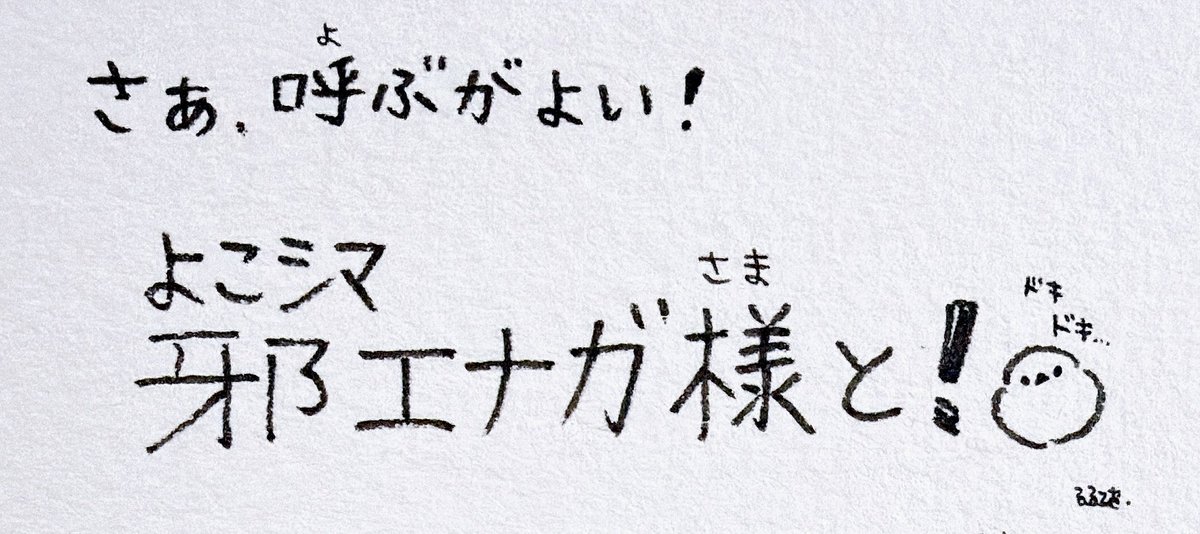 よ
さぁ、呼ぶがよい!
よこシマ
さま
邪エナガ様と!
ドキ
ドキ…